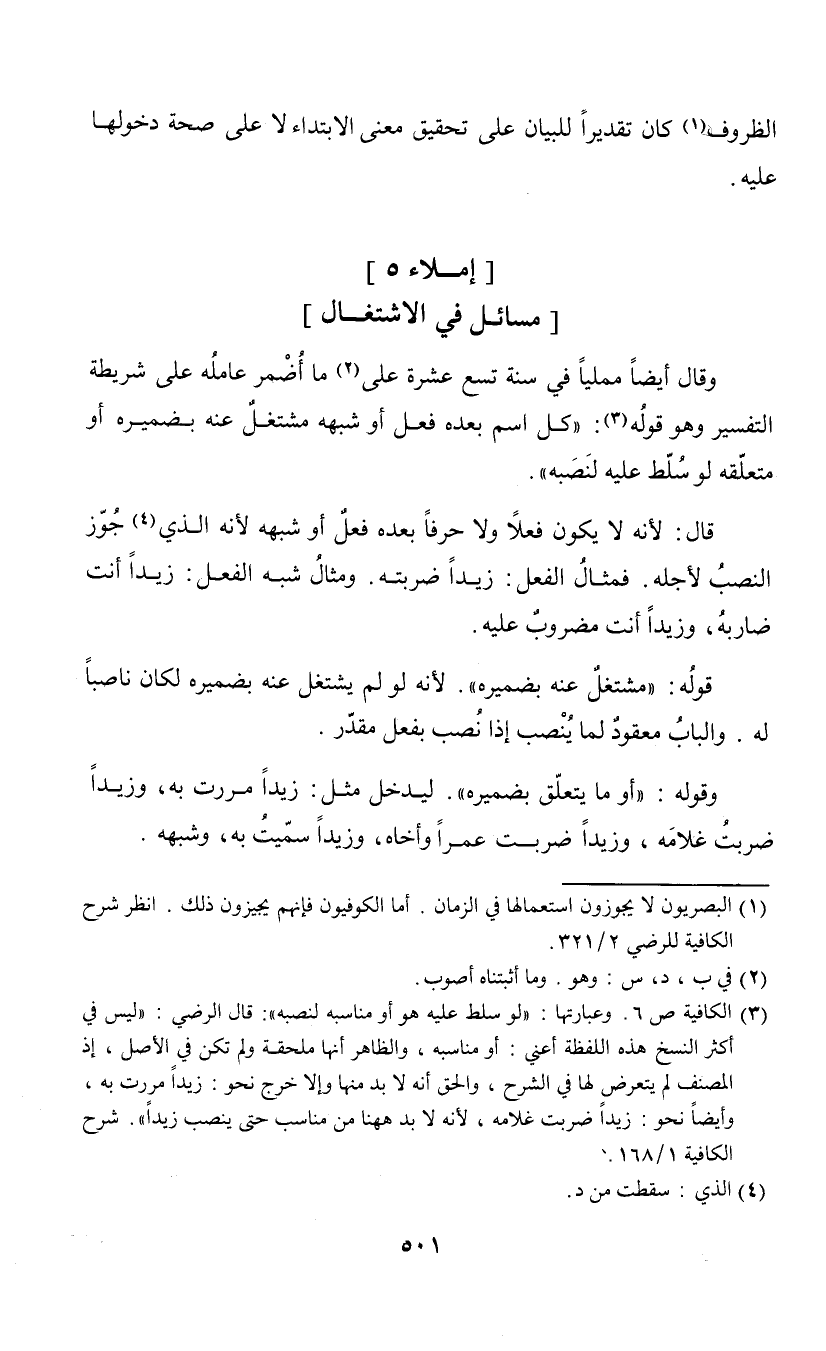 الظروف(١) كان تقديراً للبيان على تحقيق معنى الابتداء لا على صحة دخولها
عليه .
[ إملاء ٥ ]
[ مسائل في الاشتغال ]
وقال أيضاً ممليا‌ً في سنة تسع عشرة على(٢) ما أُضْمر عاملُه على شريطة
التفسير وهو قولُه(٣): «كل اسم بعده فعل أو شبهه مشتغلٌ عنه بضميره أو
متعلّقه لو سُلّط عليه لنَصَبه» .
قال: لأنه لا يكون فعلاً ولا حرفاً بعده فعلٌ أو شبهه لأنه الذي(٤) جُوّز
النصبُ لأجله. فمثالُ الفعل: زيداً ضربته. ومثالُ شبه الفعل: زيداً أنت
ضاربهُ، وزيداً أنت مضروبٌ عليه.
قولُه: «مشتغلٌ عنه بضميره». لأنه لو لم يشتغل عنه بضميره لكان ناصباً
له . والبابُ معقودٌ لما يُنْصب إذا نُصب بفعل مقدّر .
وقوله : «أو ما يتعلّق بضميره». ليدخل مثل: زيداً مررت به، وزيداً
ضربتُ غلامَه ، وزيداً ضربت عمراً وأخاه، وزيداً سمّيتُ به، وشبهه .
(١) البصريون لا يجوزون استعمالها في الزمان . أما الكوفيون فإنهم يجيزون ذلك . انظر شرح
الكافية للرضي ٣٢١/٢.
(٢) في ب ، د، س : وهو . وما أثبتناه أصوب.
(٣) الكافية ص ٦. وعبارتها : «لو سلط عليه هو أو مناسبه لنصبه»: قال الرضي : «ليس في
أكثر النسخ هذه اللفظة أعني : أو مناسبه ، والظاهر أنها ملحقة ولم تكن في الأصل ، إذ
المصنف لم يتعرض لها في الشرح ، والحق أنه لا بد منها وإلا خرج نحو : زيداً مررت به ،
وأيضاً نحو : زيداً ضربت غلامه ، لأنه لا بد ههنا من مناسب حتى ينصب زيداً». شرح
الكافية ١٦٨/١.
(٤) الذي : سقطت من د.
٥٠١